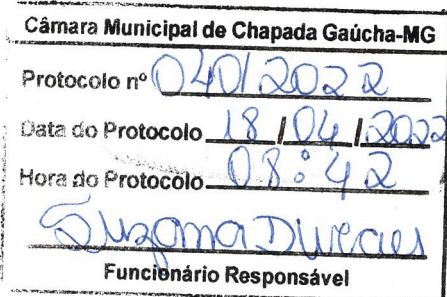 Câmara Municipal de Chapada Gaúcha-MG
Protocolo nº 040/2022
Data do Protocolo 18/04/2022
Hora do Protocolo 08:42
Suzana
Funcionário Responsável